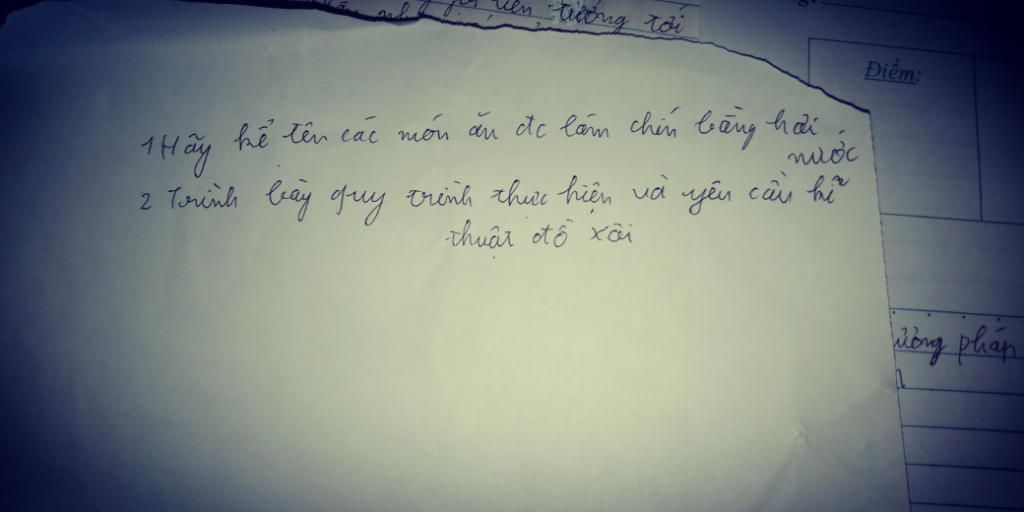 tiên tưởng tới
Điểm:
1 Hãy kể tên các món ăn đc làm chín bằng hơi
nước
2 Trình bày quy trình thực hiện và yêu cầu kĩ
thuật đồ xôi
ương pháp